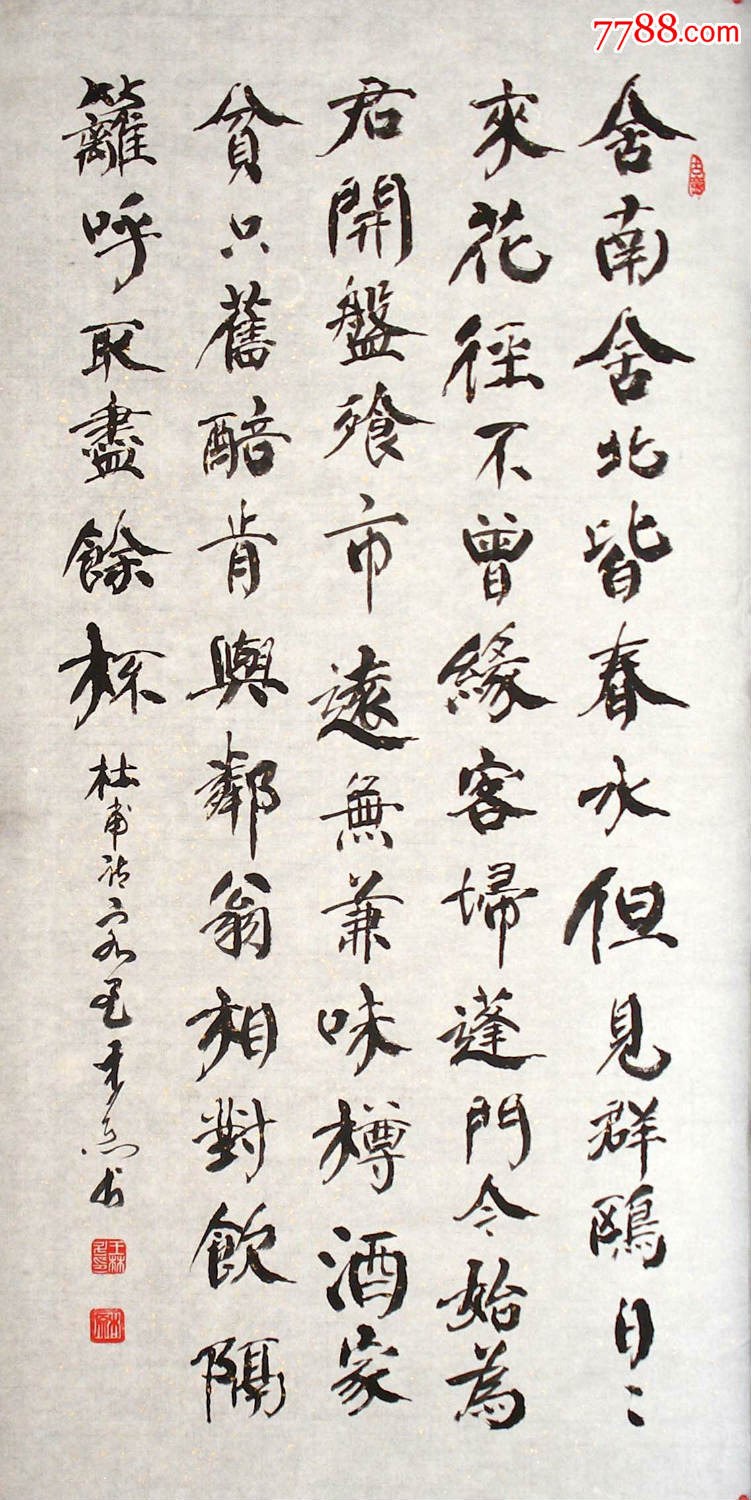 7788.com
舍南舍北皆春水但見群鷗日〻
來花徑不曾緣客埽蓬門今始為
君開盤飱市遠無兼味樽酒家
貧只舊醅肯與鄰翁相對飲隔
籬呼取盡餘杯
杜甫詩客至